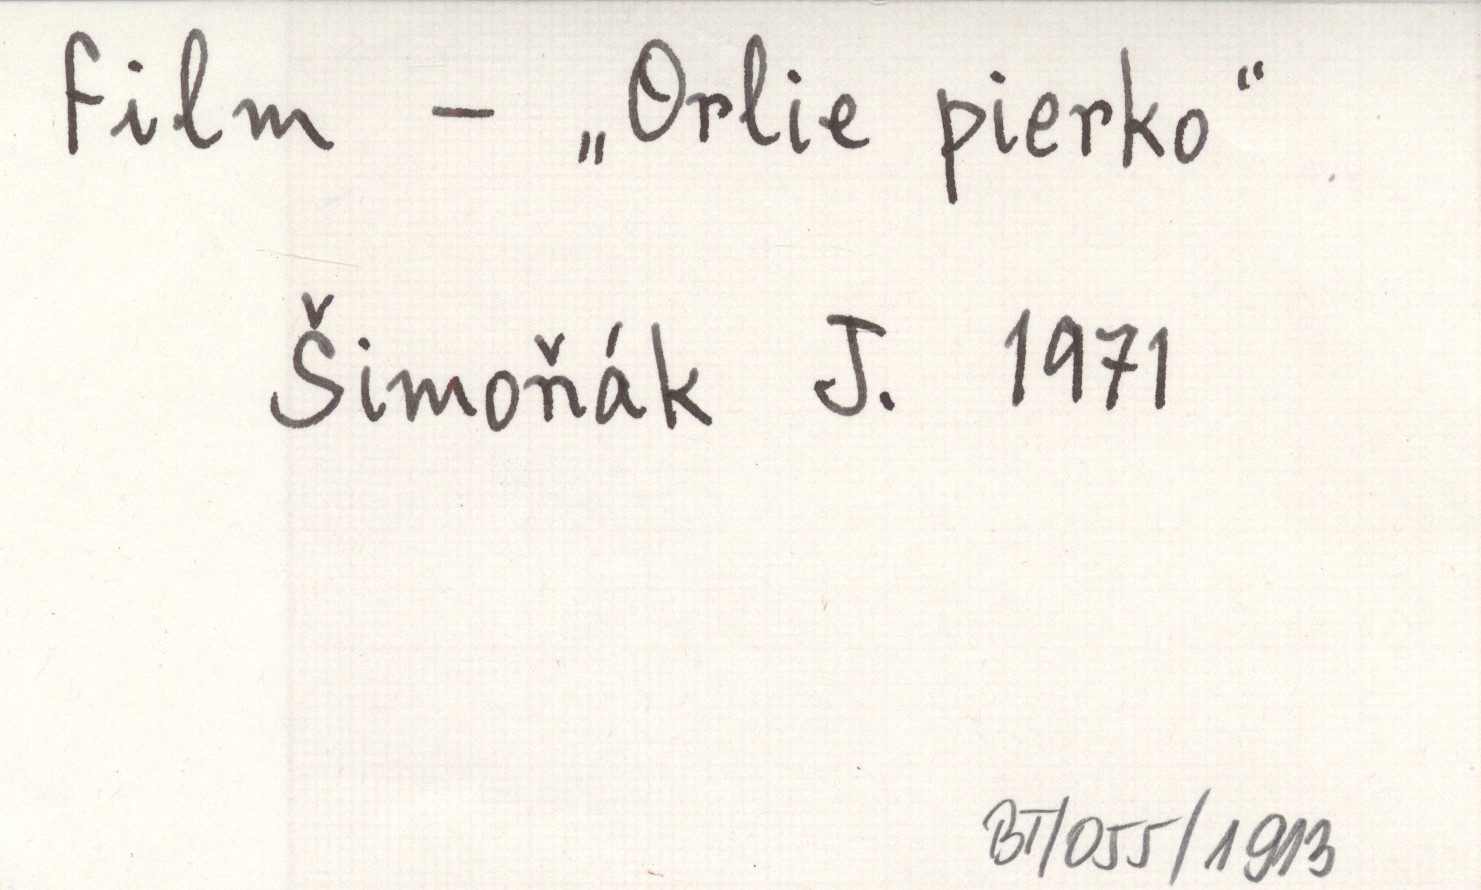 Film - „Orlie pierko“
Šimoňák J. 1971
BT/055/1913